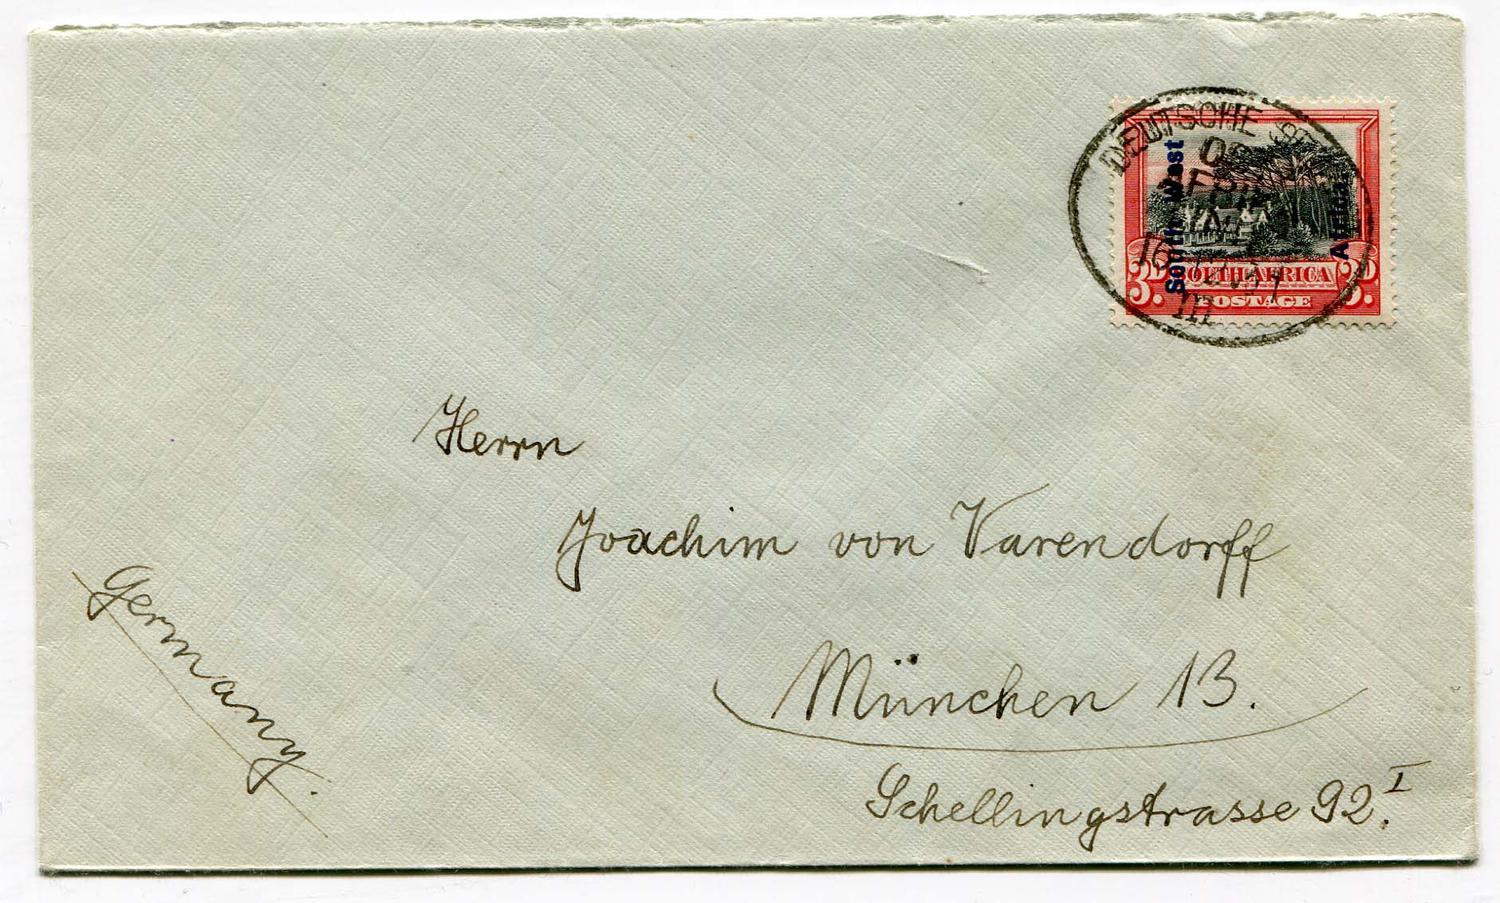 DEUTSCHE
South West
Africa
3D.
SOUTH AFRICA
3D.
POSTAGE
III
Herrn
Joachim von Varendorff
München 13.
Schellingstrasse 92.I
Germany.